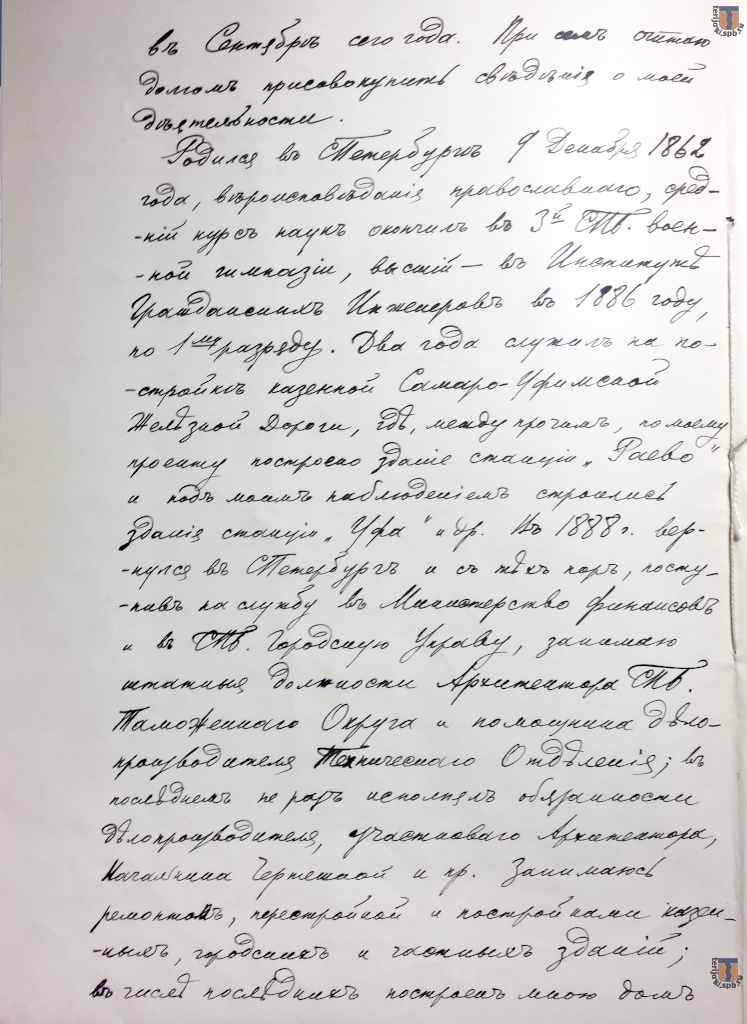 terijoki.spb.ru
въ Сентябрѣ сего года. При семъ считаю
долгомъ присовокупить свѣдѣнія о моей
дѣятельности.
Родился въ СПетербургѣ 9 Декабря 1862
года, вѣроисповѣданія православнаго, сред-
-ній курсъ наукъ окончилъ въ 3й СПб. воен-
-ной гимназіи, высшій – въ Институтѣ
Гражданскихъ Инженеровъ въ 1886 году,
по 1му разряду. Два года служилъ на по-
-стройкѣ казенной Самаро-Уфимской
Желѣзной Дороги, гдѣ, между прочимъ, по моему
проекту построено зданіе станціи „Раево"
и подъ моимъ наблюденіемъ строились
зданія станціи „Уфа" и др. Въ 1888 г. вер-
-нулся въ СПетербургъ и съ тѣхъ поръ, посту-
-пивъ на службу въ Министерство Финансовъ
и въ СПб. Городскую Управу, занимаю
штатныя должности Архитектора СПб.
Таможеннаго Округа и помощника дѣло-
производителя Техническаго Отдѣленія; въ
послѣднемъ не разъ исполнялъ обязанности
дѣлопроизводителя, участковаго Архитектора,
Начальника Чертежной и пр. Занимаюсь
ремонтомъ, перестройкой и постройками казен-
-ныхъ, городскихъ и частныхъ зданій;
въ числѣ послѣднихъ построенъ мною домъ
terijoki.spb.ru